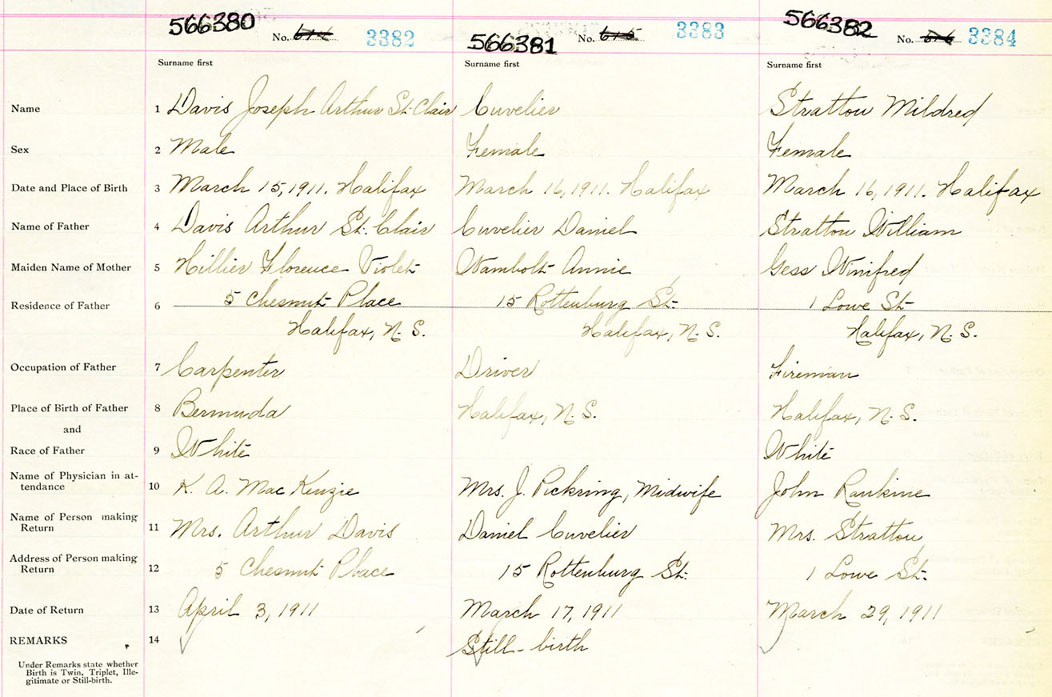 566380 No. 3382 566381 No. 615 3383 566382 No. 616 3384
Surname first Surname first Surname first
Name 1 Davis Joseph Arthur St. Clair Cuvelier Stratton Mildred
Sex 2 Male Female Female
Date and Place of Birth 3 March 15, 1911. Halifax March 16, 1911. Halifax March 16, 1911. Halifax
Name of Father 4 Davis Arthur St. Clair Cuvelier Daniel Stratton William
Maiden Name of Mother 5 Hillier Florence Violet Wambolt Annie Gess Winifred
Residence of Father 6 5 Chesnut Place 15 Rottenburg St. 1 Lowe St.
Halifax, N. S. Halifax, N. S. Halifax, N. S.
Occupation of Father 7 Carpenter Driver Fireman
Place of Birth of Father 8 Bermuda Halifax, N. S. Halifax, N. S.
and
Race of Father 9 White White
Name of Physician in at-
tendance 10 K. A. MacKenzie Mrs. J. Pickring, Midwife John Rankine
Name of Person making
Return 11 Mrs. Arthur Davis Daniel Cuvelier Mrs. Stratton
Address of Person making
Return 12 5 Chesnut Place 15 Rottenburg St. 1 Lowe St.
Date of Return 13 April 3, 1911 March 17, 1911 March 29, 1911
REMARKS 14 Still-birth
Under Remarks state whether
Birth is Twin, Triplet, Ille-
gitimate or Still-birth.